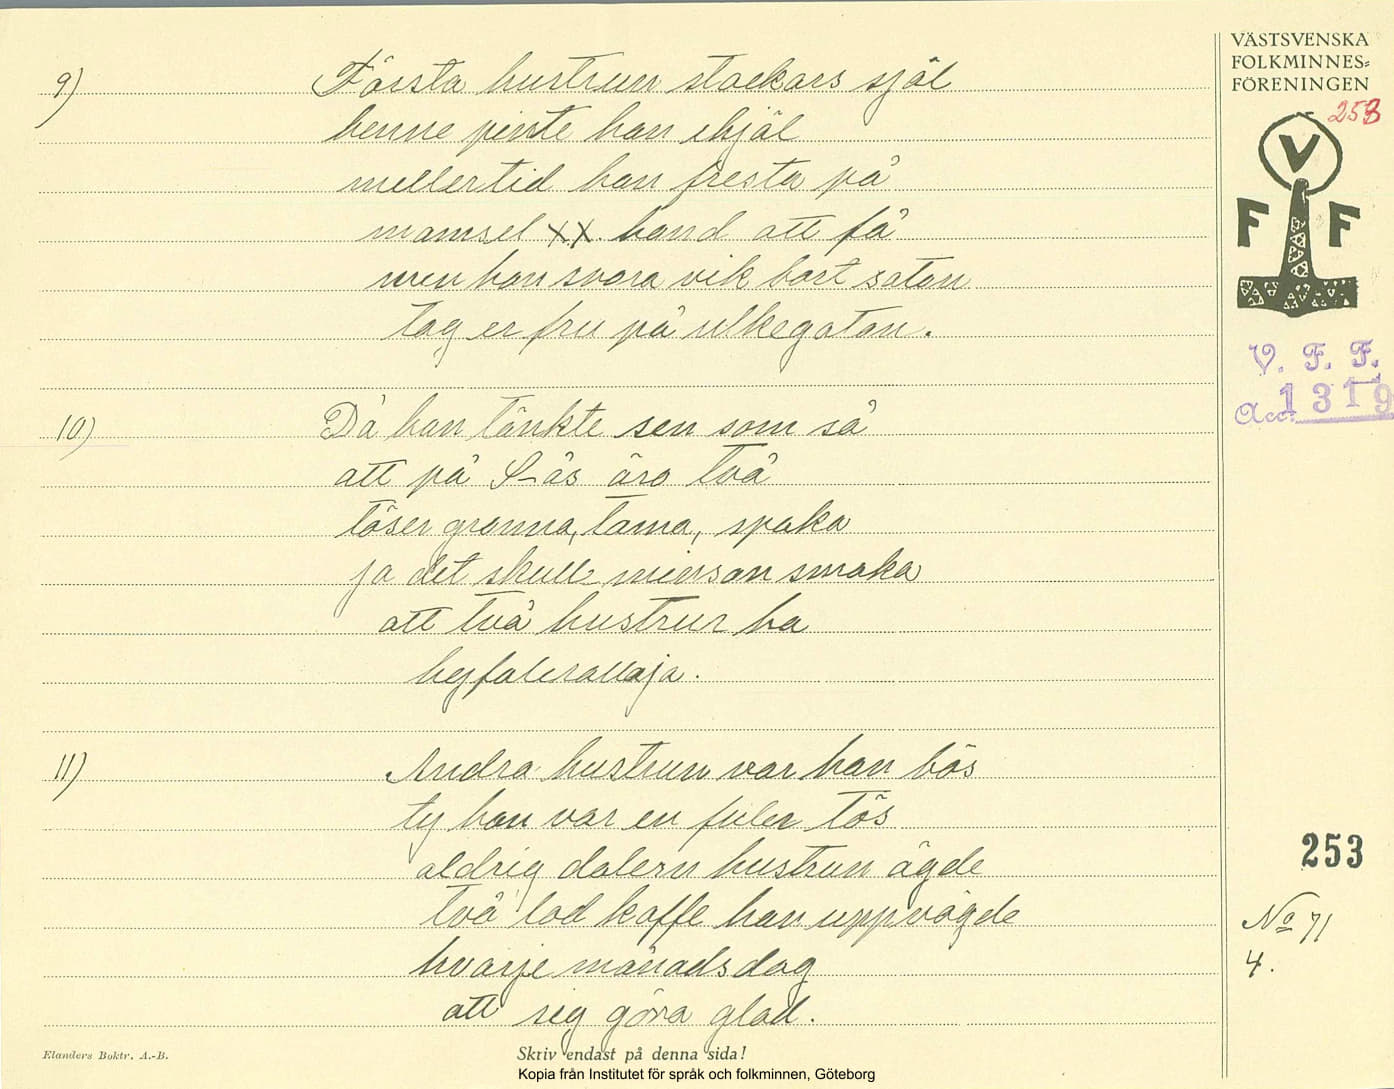 VÄSTSVENSKA
FOLKMINNES-
FÖRENINGEN
258
V
F F
V. F. F.
Acc. 1319
9) Första hustrun stackars själ
henne pinte han ihjäl
mellertid han fresta på
mamsel XX hand att få
men hon svara vik bort satan
tag er fru på ulkegatan.
10) Då han tänkte sen som så
att på S-ås äro två
töser granna, tama, spaka
ja det skulle minsan smaka
att två hustrur ha
hejfaleralleja.
11) Andra hustrun var han bös
ty hon var en fuler tös
aldrig dalern hustrun ägde
två lod kaffe han uppvägde
hvarje månadsdag
att sig göra glad.
253
No 71
4.
Elanders Boktr. A.-B.
Skriv endast på denna sida!
Kopia från Institutet för språk och folkminnen, Göteborg